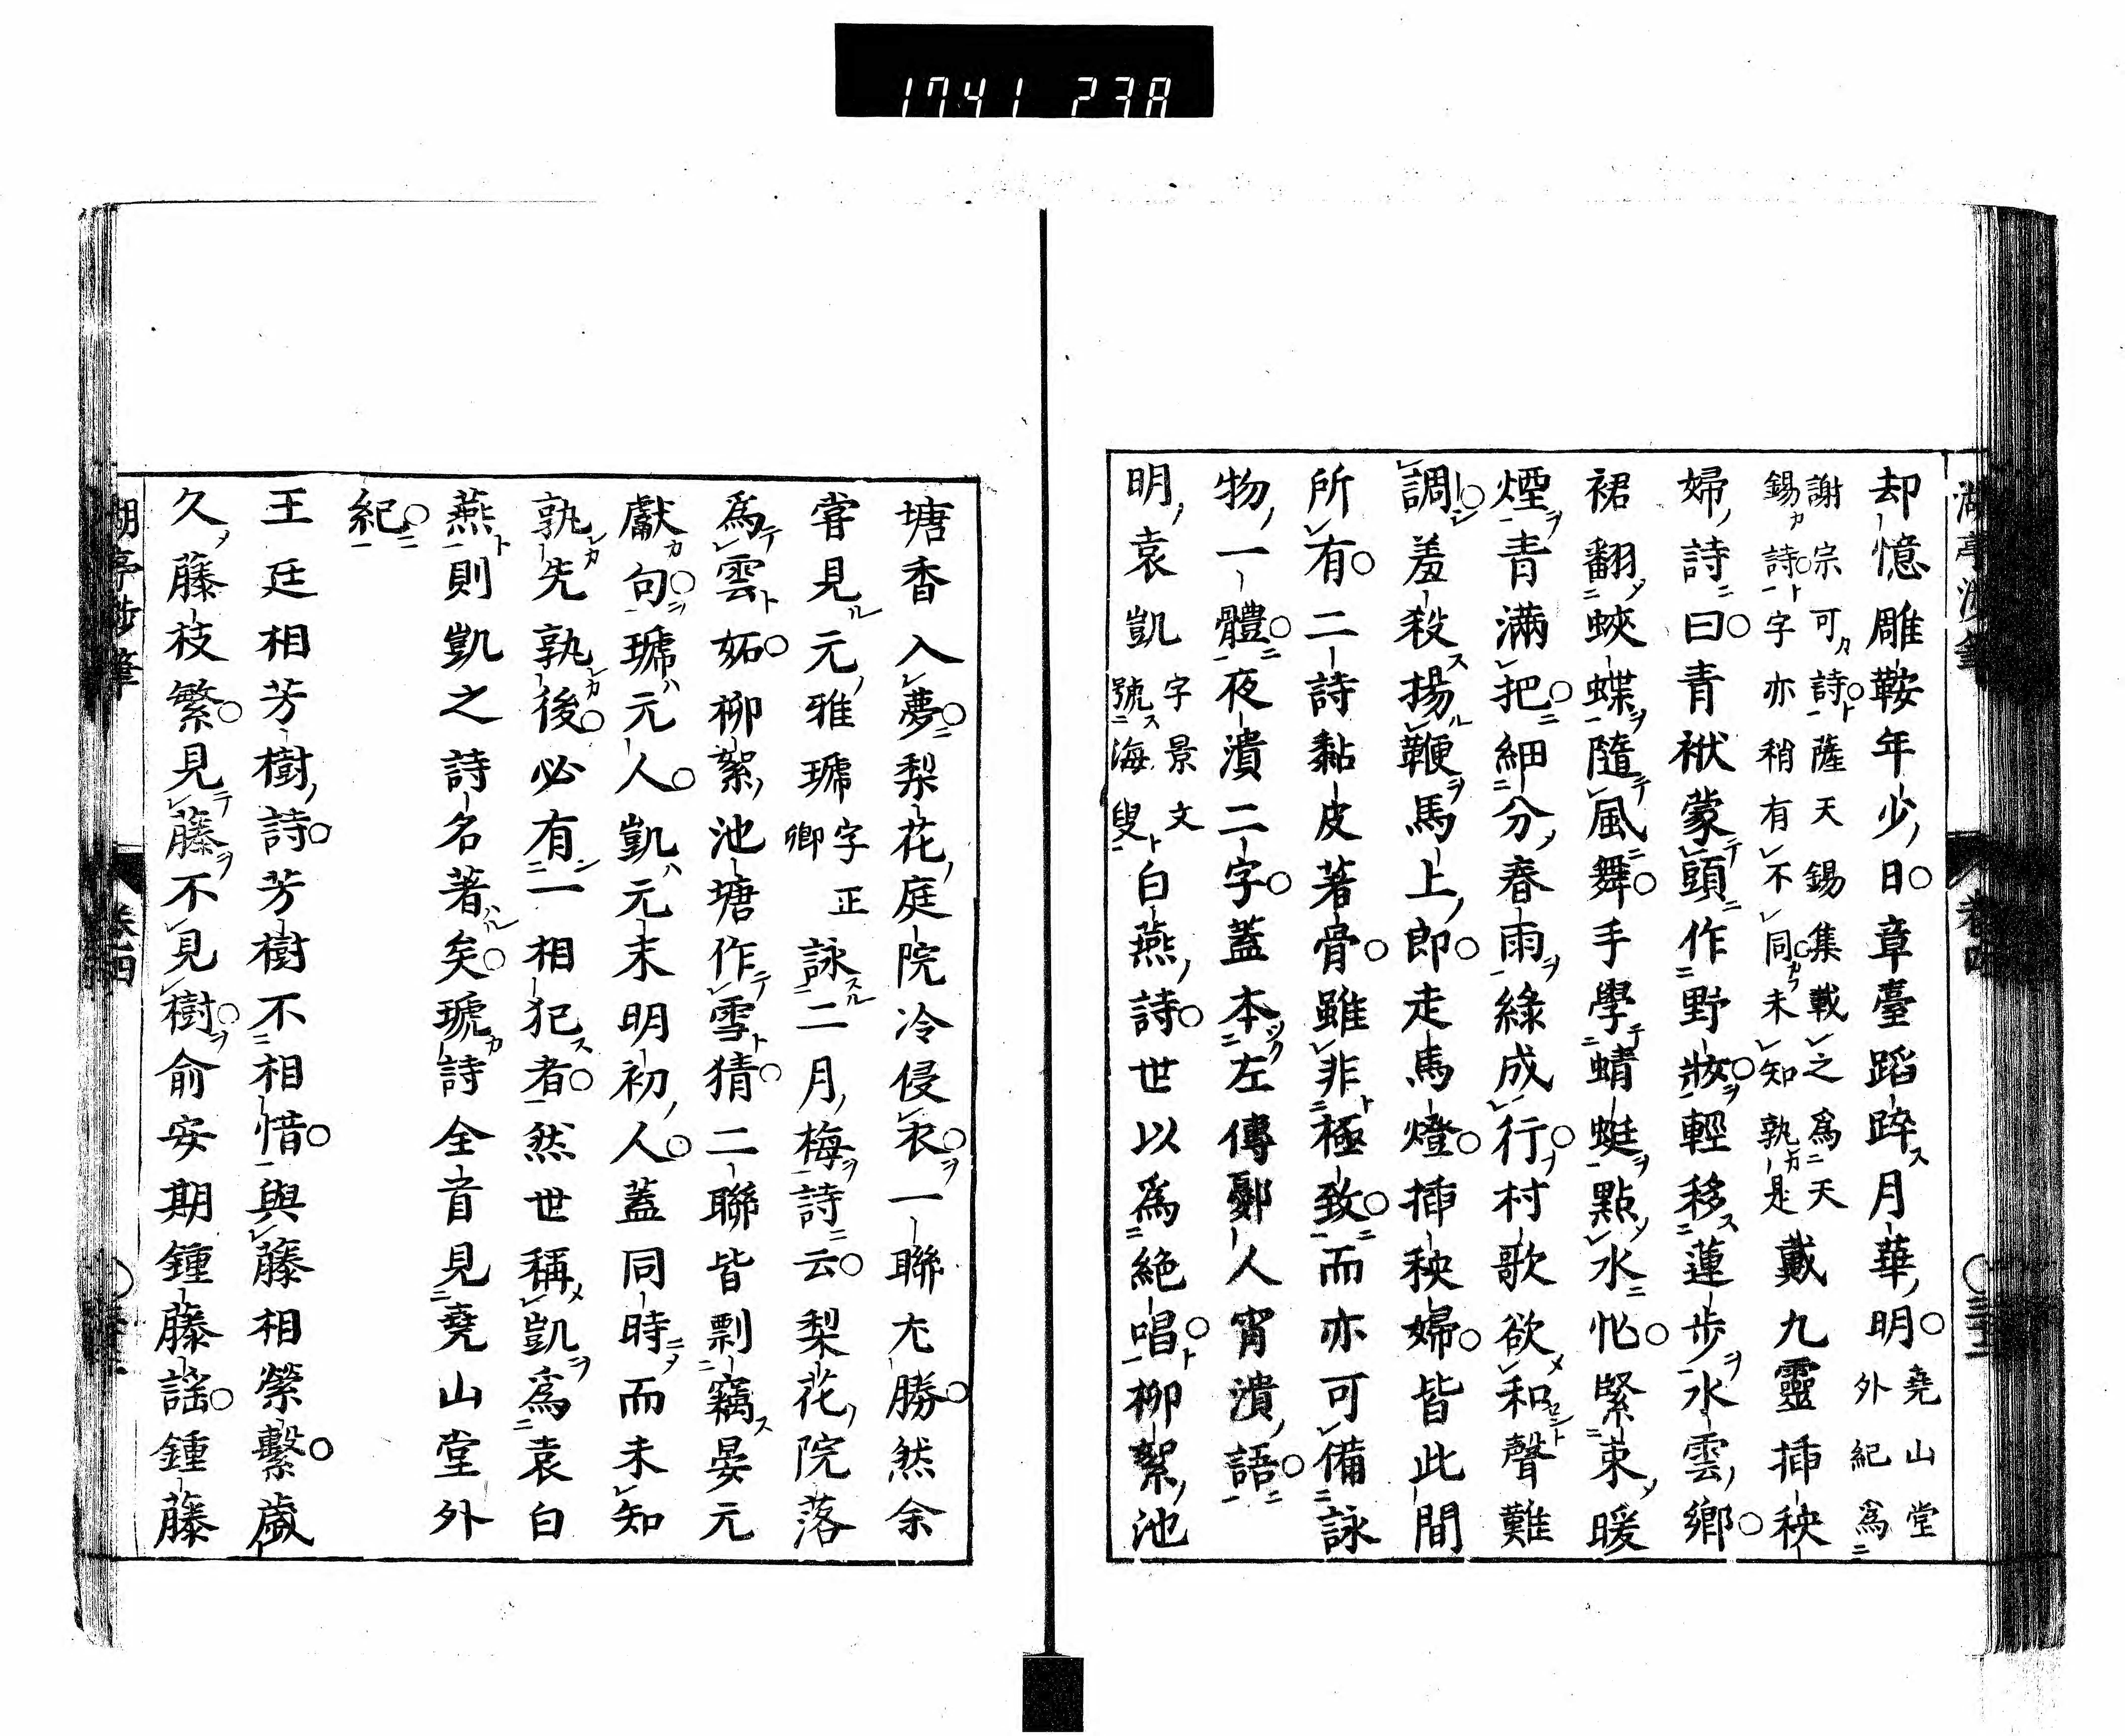 1741 238
却憶雕鞍年少日章臺蹈踤月華明堯山堂外紀爲
謝宗可詩薩天錫集載之爲天
錫詩字亦稍有不同未知孰是戴九靈挿秧
婦詩曰青袱蒙頭作野妝輕移蓮步水雲鄉
裙翻蛺蝶隨風舞手學蜻蜓點水忙緊束暖
煙青滿把細分春雨綠成行村歌欲和聲難
調羞殺揚鞭馬上郎走馬燈挿秧婦皆此間
所有二詩黏皮著骨雖非極致而亦可備詠
物一體夜潰二字蓋本左傳鄭人宵潰語
明袁凱字景文號海叟白燕詩世以爲絶唱柳絮池
塘香入夢梨花庭院冷侵衣一聯尤勝然余
甞見元雅琥字正卿詠二月梅詩云梨花院落
爲雲妬柳絮池塘作雪猜二聯皆剽竊晏元
獻句琥元人凱元末明初人蓋同時而未知
孰先孰後必有一相犯者然世稱凱爲袁白
燕則凱之詩名著矣琥詩全首見堯山堂外
紀
王廷相芳樹詩芳樹不相惜與藤相縈繫歲
久藤枝繁見藤不見樹俞安期鍾藤謡鍾藤
湖亭涉筆
卷四